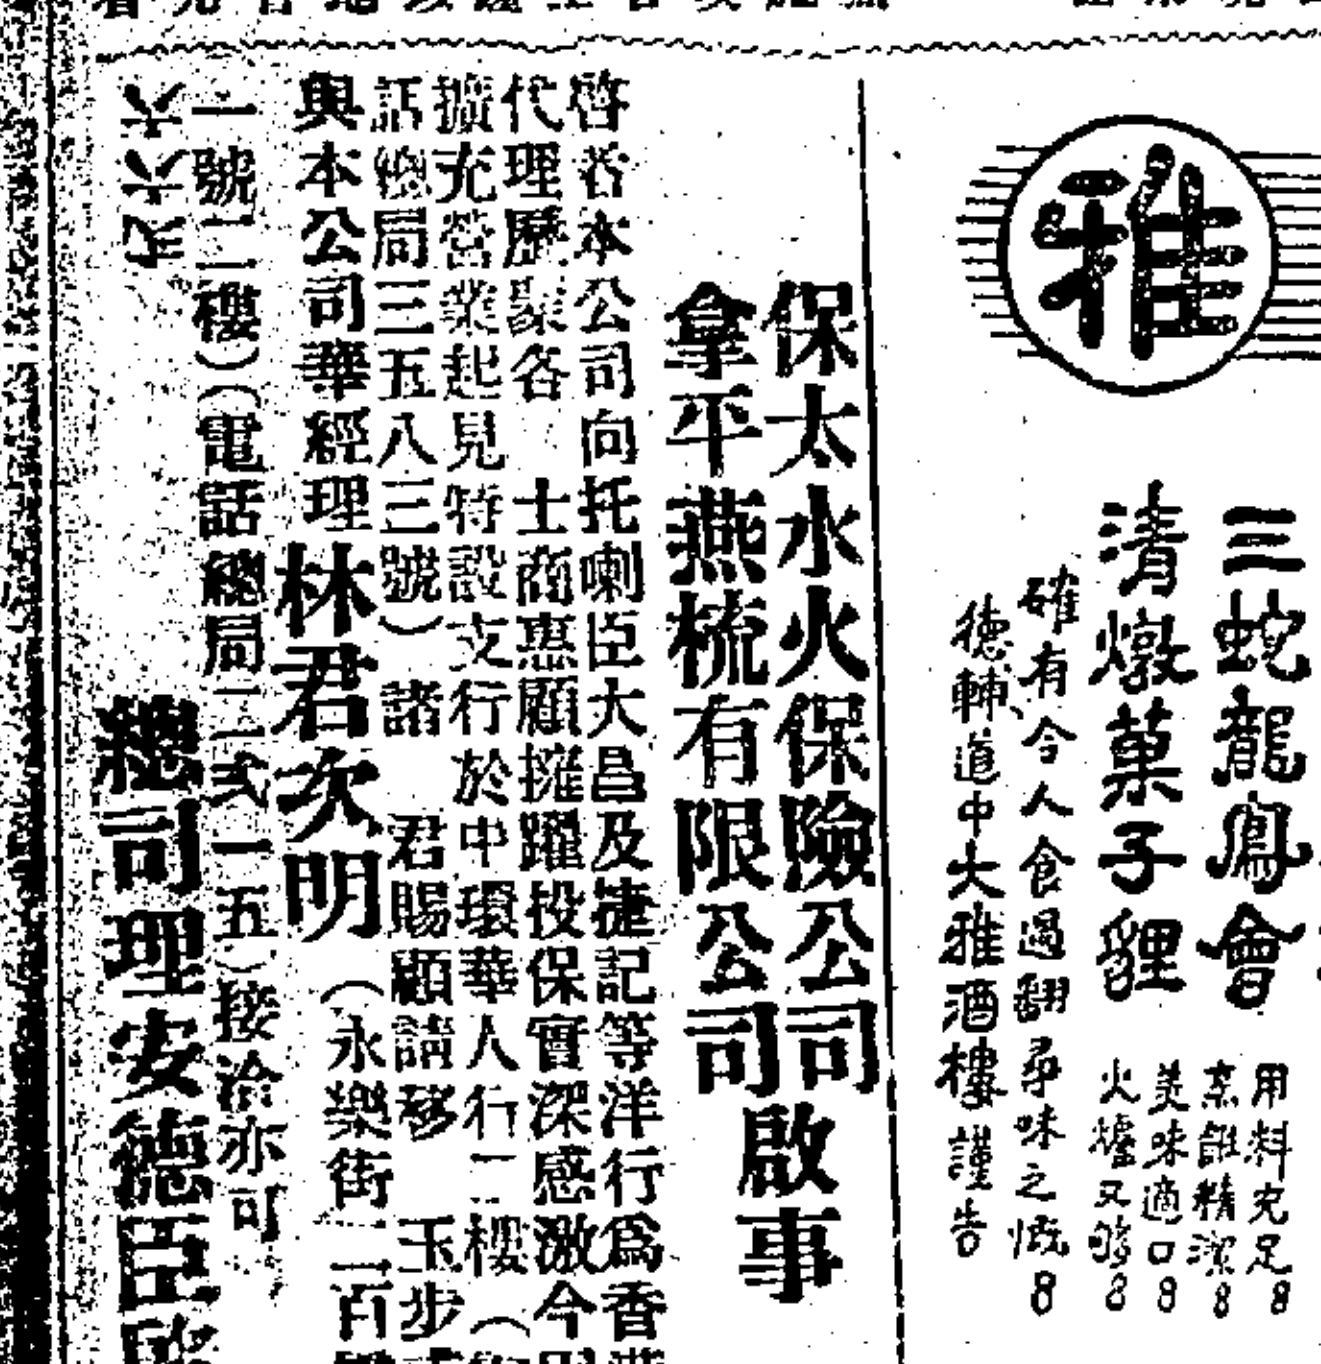 雅
三蛇龍鳳會
清燉菓子貍
用料充足
烹飪精潔
美味適口
火爐又夠
確有今人食過翻尋味之慨
德輔道中大雅酒樓謹告
保太水火保險公司
拿平燕梳有限公司
啟事
啓者本公司向托喇臣大昌及捷記等洋行爲香
代理歷蒙各 士商惠顧擁躍投保實深感激今因
擴充營業起見特設支行於中環華人行二樓(
話總局三五八三號)諸 君賜顧請移 玉步或
與本公司華經理林君次明(永樂街二百
一號二樓)(電話總局二弍一五)接洽亦可
六六
六六弍
總司理安德臣